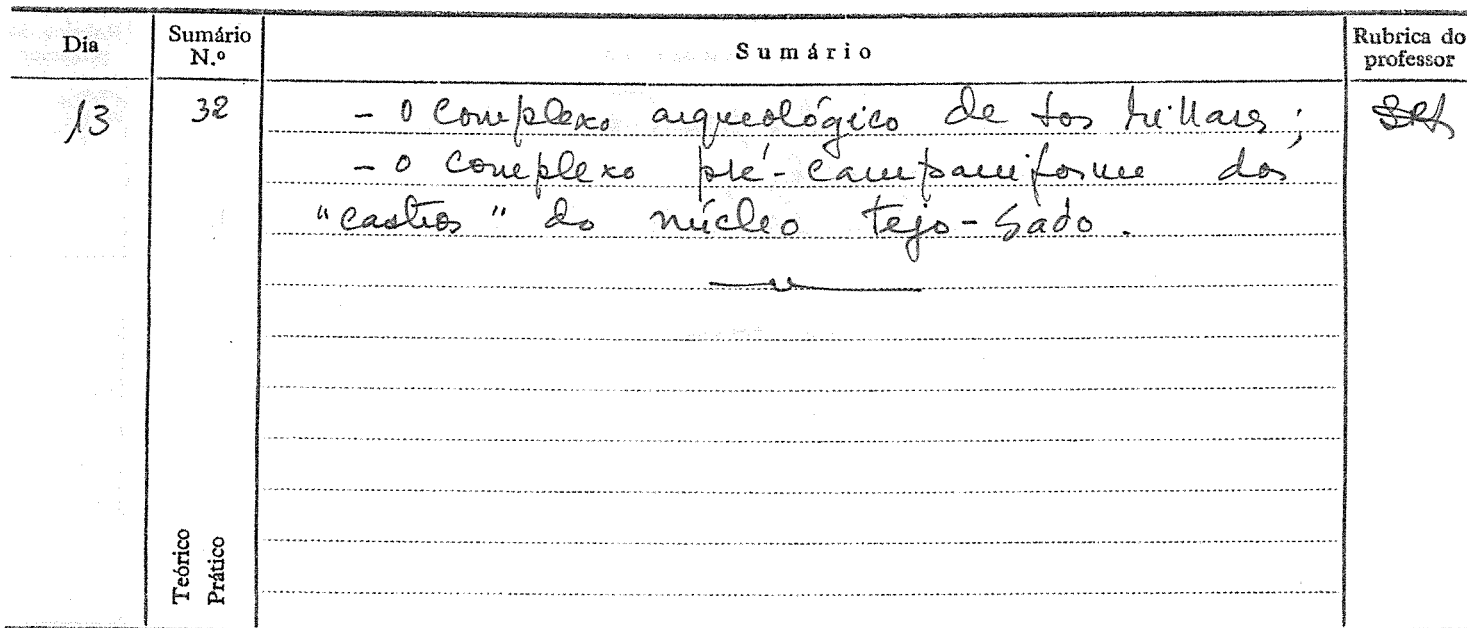 Dia Sumário N.º Sumário Rubrica do professor
13 32 - O complexo arqueológico de Los Millares;
- O complexo pré-campaniforme dos
"castros" do núcleo Tejo-Sado.
Teórico
Prático